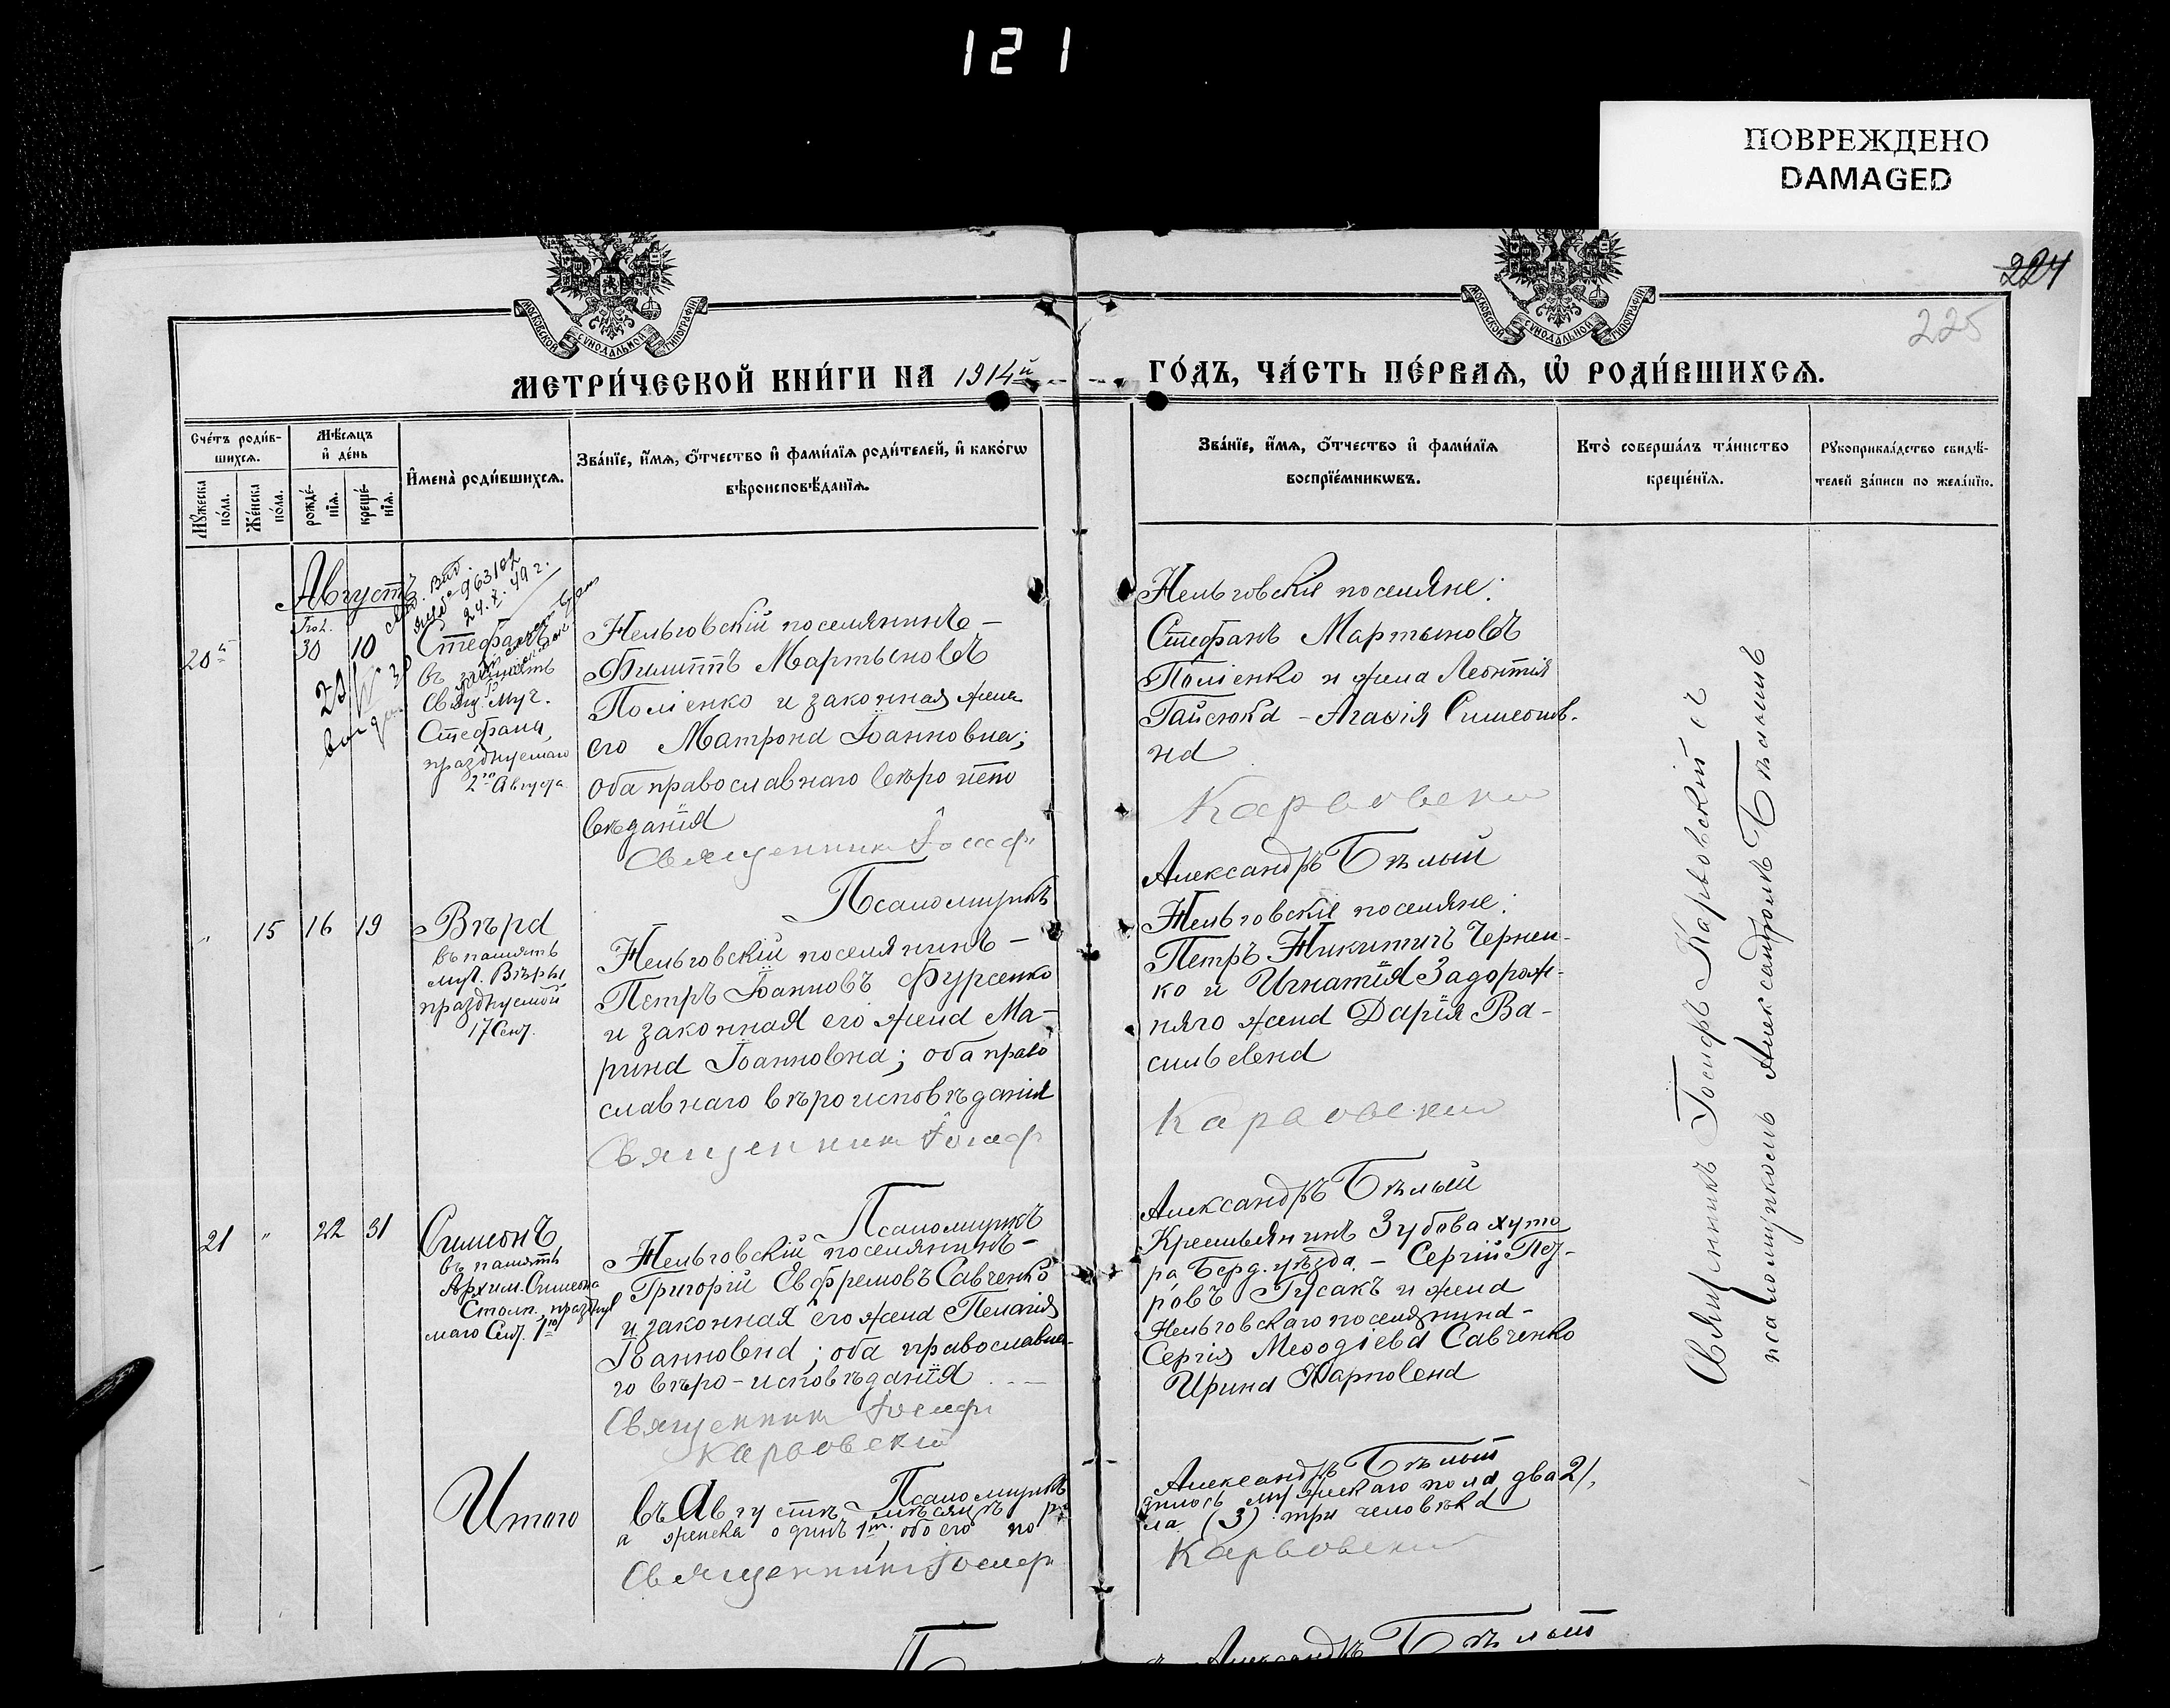 121
ПОВРЕЖДЕНО
DAMAGED
224
225
МОСКОВСКОЙ СѴНОДАЛЬНОЙ ТИПОГРАФІИ
МОСКОВСКОЙ СѴНОДАЛЬНОЙ ТИПОГРАФІИ
МЕТРИ́ЧЕСКОЙ КНИ́ГИ НА 1914й
ГО́ДЪ, ЧА́СТЬ ПЕ́РВАѦ, Ѡ РОДИ́ВШИХСѦ.
Сче́тъ роди́в-
шихсѧ.
Мѣ́сѧцъ
и҆ де́нь
Мꙋ́жеска
по́ла.
Же́нска
по́ла.
рожде́-
нїѧ.
креще́-
нїѧ.
И҆мена̀ роди́вшихсѧ.
Зва́нїе, и҆́мѧ, ѻ҆́тчество и҆ фами́лїѧ роди́телей, и҆ како́гѡ
вѣроисповѣ́данїѧ.
Зва́нїе, и҆́мѧ, ѻ҆́тчество и҆ фами́лїѧ
воспрїе́мникѡвъ.
Кто̀ соверша́лъ та́инство
креще́нїѧ.
Рꙋкоприкла́дство свидѣ́-
телей за́писи по жела́нїю.
Августъ
963182
20й
30
10
Стефанъ
въ память
Свящ. муч.
Стефана,
празднуемаго
2го Августа
Нельговскій поселянинъ –
Филиппъ Мартыновъ
Поліенко и законная жена
его Матрона Іоанновна;
оба православнаго вѣроиспо
вѣданія
Священникъ Іосиф
Псаломщикъ
Нельговскіе поселяне:
Стефанъ Мартыновъ
Поліенко и жена Леонтія
Гайсюка – Агаѳія Симеонов-
на
Карвовскій
Александръ Бѣлый
"
15
16
19
Вѣра
въ память
муч. Вѣры
празднуемой
17 Сент.
Нельговскій поселянинъ –
Петръ Іоанновъ Фурсенко
и законная его жена Ма-
рина Іоанновна; оба право
славнаго вѣроисповѣданія
Священникъ Іосиф
Псаломщикъ
Нельговскіе поселяне:
Петръ Никитичъ Чернен-
ко и Игнатія Задорож-
няго жена Дарія Ва-
сильевна
Карвовскій
Александръ Бѣлый
21
"
22
31
Симеонъ
въ память
Архим. Симеона
Столп., праздну
маго Сент. 1го
Нельговскій поселянинъ –
Григорій Евфремовъ Савченко
и законная его жена Пелагія
Іоанновна; оба православна-
го вѣро-исповѣданія
Священникъ Іосифъ
Карвовскій
Псаломщикъ
Крестьянинъ Зубова хуто
ра Берд. уѣзда – Сергій Пет-
ровъ Гусакъ и жена
Нельговскаго поселянина –
Сергія Меѳодіева Савченко
Ирина Карповна
Александръ Бѣлый
Священникъ Іосифъ Карвовскій съ
псаломщикомъ Александромъ Бѣлымъ
Итого
въ Августѣ мѣсяцѣ ро
дилось мужескаго пола два 2,
а женска одинъ 1н, обоего по
ла (3) три человѣка
Священникъ Іосиф
Карвовскій
Александръ Бѣлый